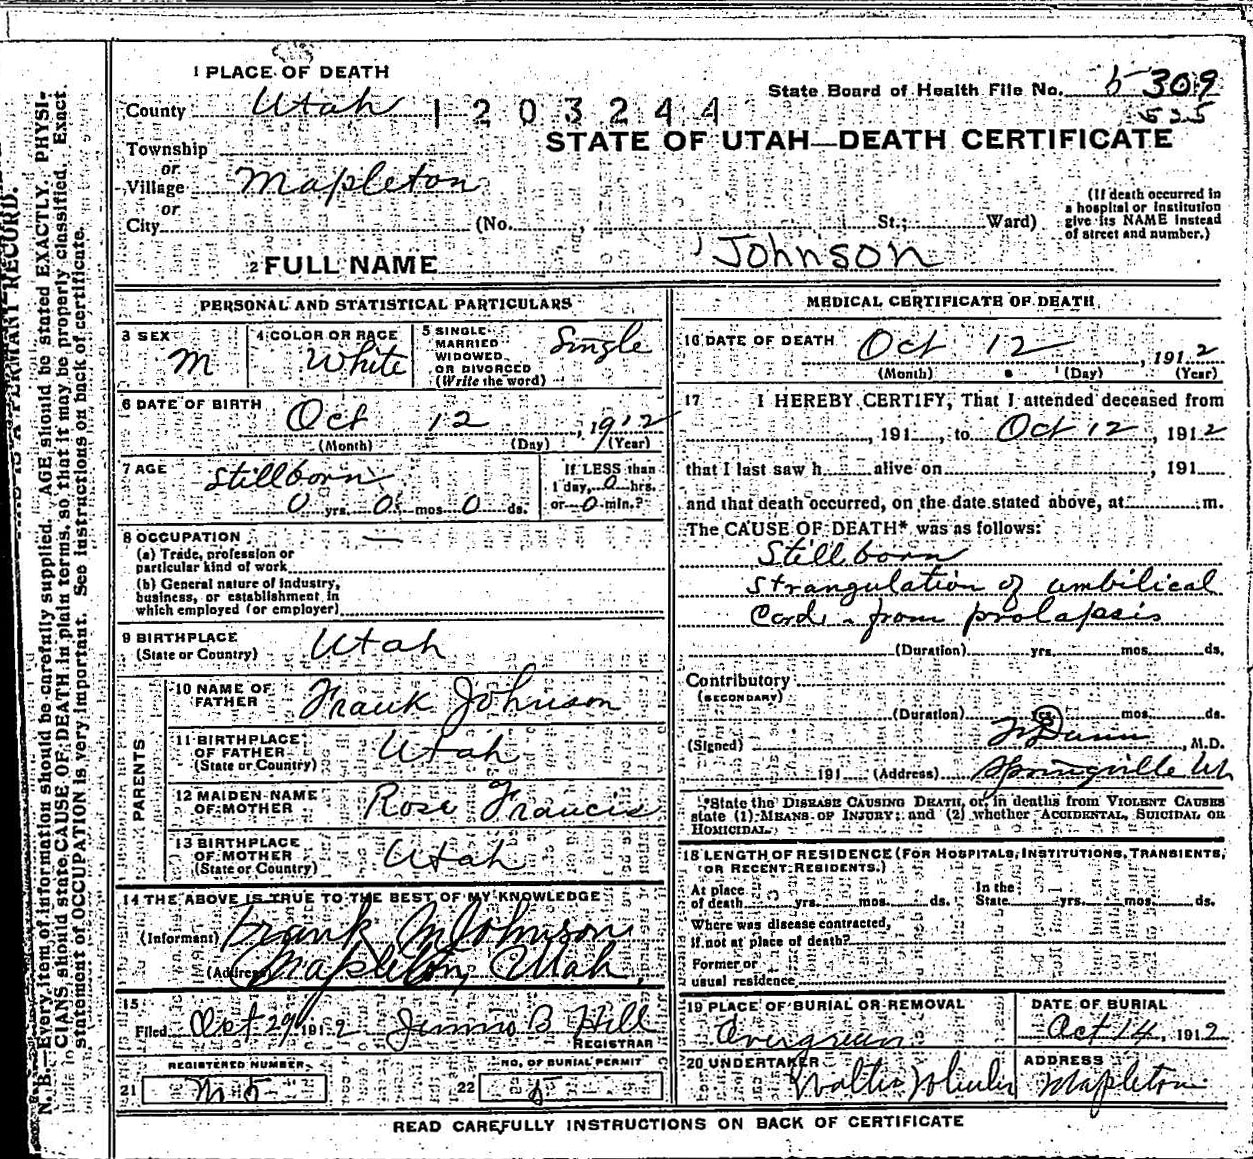 1 PLACE OF DEATH
State Board of Health File No. 309
535
County Utah 1203244
STATE OF UTAH—DEATH CERTIFICATE
Township
or
Village Mapleton
or
City (No. , St.; Ward)
(If death occurred in
a hospital or institution
give its NAME instead
of street and number.)
2 FULL NAME Johnson
PERSONAL AND STATISTICAL PARTICULARS
3 SEX M
4 COLOR OR RACE White
5 SINGLE
MARRIED
WIDOWED
OR DIVORCED
(Write the word) Single
6 DATE OF BIRTH Oct 12, 1912
(Month) (Day) (Year)
7 AGE Stillborn
0 yrs. 0 mos. 0 ds.
If LESS than
1 day, 0 hrs.
or 0 min.?
8 OCCUPATION —
(a) Trade, profession or
particular kind of work
(b) General nature of Industry,
business, or establishment in
which employed (or employer)
9 BIRTHPLACE
(State or Country) Utah
PARENTS
10 NAME OF
FATHER Frank Johnson
11 BIRTHPLACE
OF FATHER
(State or Country) Utah
12 MAIDEN NAME
OF MOTHER Rose Francis
13 BIRTHPLACE
OF MOTHER
(State or Country) Utah
14 THE ABOVE IS TRUE TO THE BEST OF MY KNOWLEDGE
(Informant) Frank M Johnson
(Address) Mapleton, Utah
15
Filed Oct 29 1912 B Hill
REGISTRAR
REGISTERED NUMBER
21 M 5
NO. OF BURIAL PERMIT
22 5
MEDICAL CERTIFICATE OF DEATH
16 DATE OF DEATH Oct 12, 1912
(Month) (Day) (Year)
17 I HEREBY CERTIFY, That I attended deceased from
, 191 , to Oct 12, 1912
that I last saw h alive on , 191
and that death occurred, on the date stated above, at m.
The CAUSE OF DEATH* was as follows:
Stillborn
Strangulation of umbilical
Cord - from prolapsis
(Duration) yrs. mos. ds.
Contributory
(SECONDARY)
(Duration) yrs. mos. ds.
(Signed) Dunn, M.D.
191 (Address) Springville Ut
*State the DISEASE CAUSING DEATH, or, in deaths from VIOLENT CAUSES
state (1) MEANS OF INJURY; and (2) whether ACCIDENTAL, SUICIDAL OR
HOMICIDAL.
18 LENGTH OF RESIDENCE (FOR HOSPITALS, INSTITUTIONS, TRANSIENTS,
OR RECENT RESIDENTS.)
At place
of death yrs. mos. ds.
In the
State yrs. mos. ds.
Where was disease contracted,
if not at place of death?
Former or
usual residence
19 PLACE OF BURIAL OR REMOVAL
Evergreen
DATE OF BURIAL
Oct 14, 1912
20 UNDERTAKER
Walter Wheeler
ADDRESS
Mapleton
READ CAREFULLY INSTRUCTIONS ON BACK OF CERTIFICATE
N. B.—Every item of information should be carefully supplied. AGE should be stated EXACTLY. PHYSI-
CIANS should state CAUSE OF DEATH in plain terms, so that it may be properly classified. Exact
statement of OCCUPATION is very important. See instructions on back of certificate.